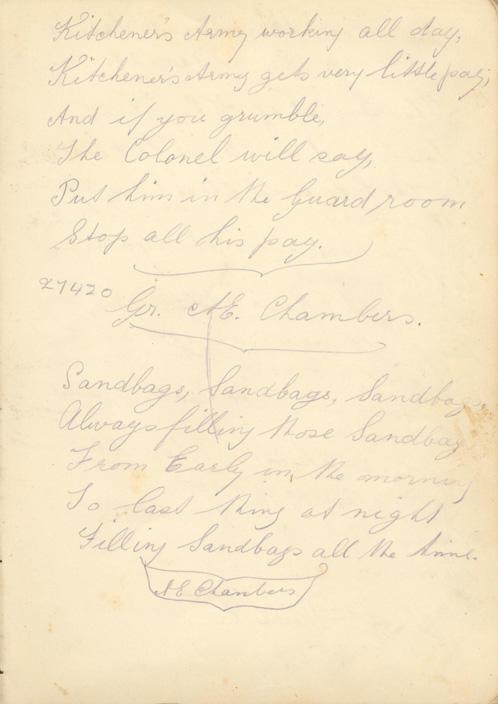 Kitchener's Army working all day,
Kitchener's Army gets very little pay,
And if you grumble,
The Colonel will say,
Put him in the Guard room
Stop all his pay.
27420
Gr. A.E. Chambers.
Sandbags, Sandbags, Sandbags,
Always filling those Sandbag
From Early in the morning
To last thing at night
Filling Sandbags all the time.
A E Chambers